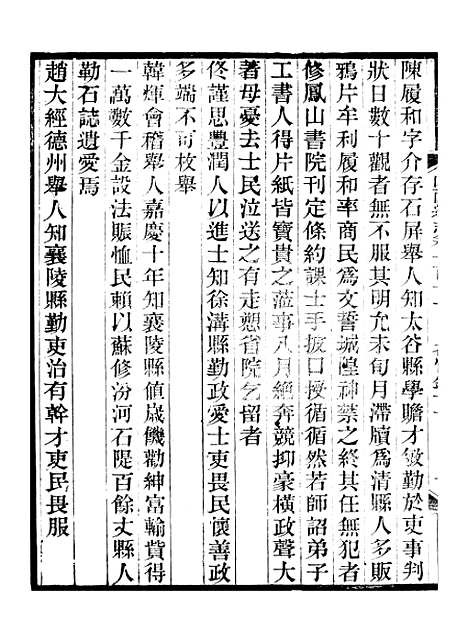 陳履和字介存石屏舉人知太谷縣學贍才敏勤於吏事判
狀日數十觀者無不服其明允未旬月滯牘爲清縣人多販
鴉片牟利履和率商民爲文誓城隍神禁之終其任無犯者
修鳳山書院刊定條約課士手披口授循循然若師詔弟子
工書人得片紙皆寶貴之蒞事八月絕奔競抑豪橫政聲大
著母憂去士民泣送之有走愬省院乞留者
佟謹思豐潤人以進士知徐溝縣勤政愛士吏畏民懷善政
多端不可枚舉
韓煇會稽舉人嘉慶十年知襄陵縣値歲饑勸紳富輸貲得
一萬數千金設法賑恤民賴以蘇修汾河石隄百餘丈縣人
勒石誌遺愛焉
趙大經德州舉人知襄陵縣勤吏治有幹才吏民畏服